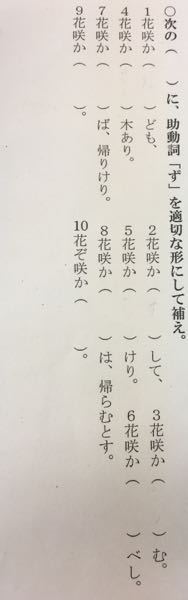 ○次の(　　)に、助動詞「ず」を適切な形にして補え。
1花咲か(　　)ども、　2花咲か(　　)して、　3花咲か(　　)む。
4花咲か(　　)木あり。　5花咲か(　　)けり。　6花咲か(　　)べし。
7花咲か(　　)ば、帰りけり。　8花咲か(　　)は、帰らむとす。
9花咲か(　　)。　10花ぞ咲か(　　)。